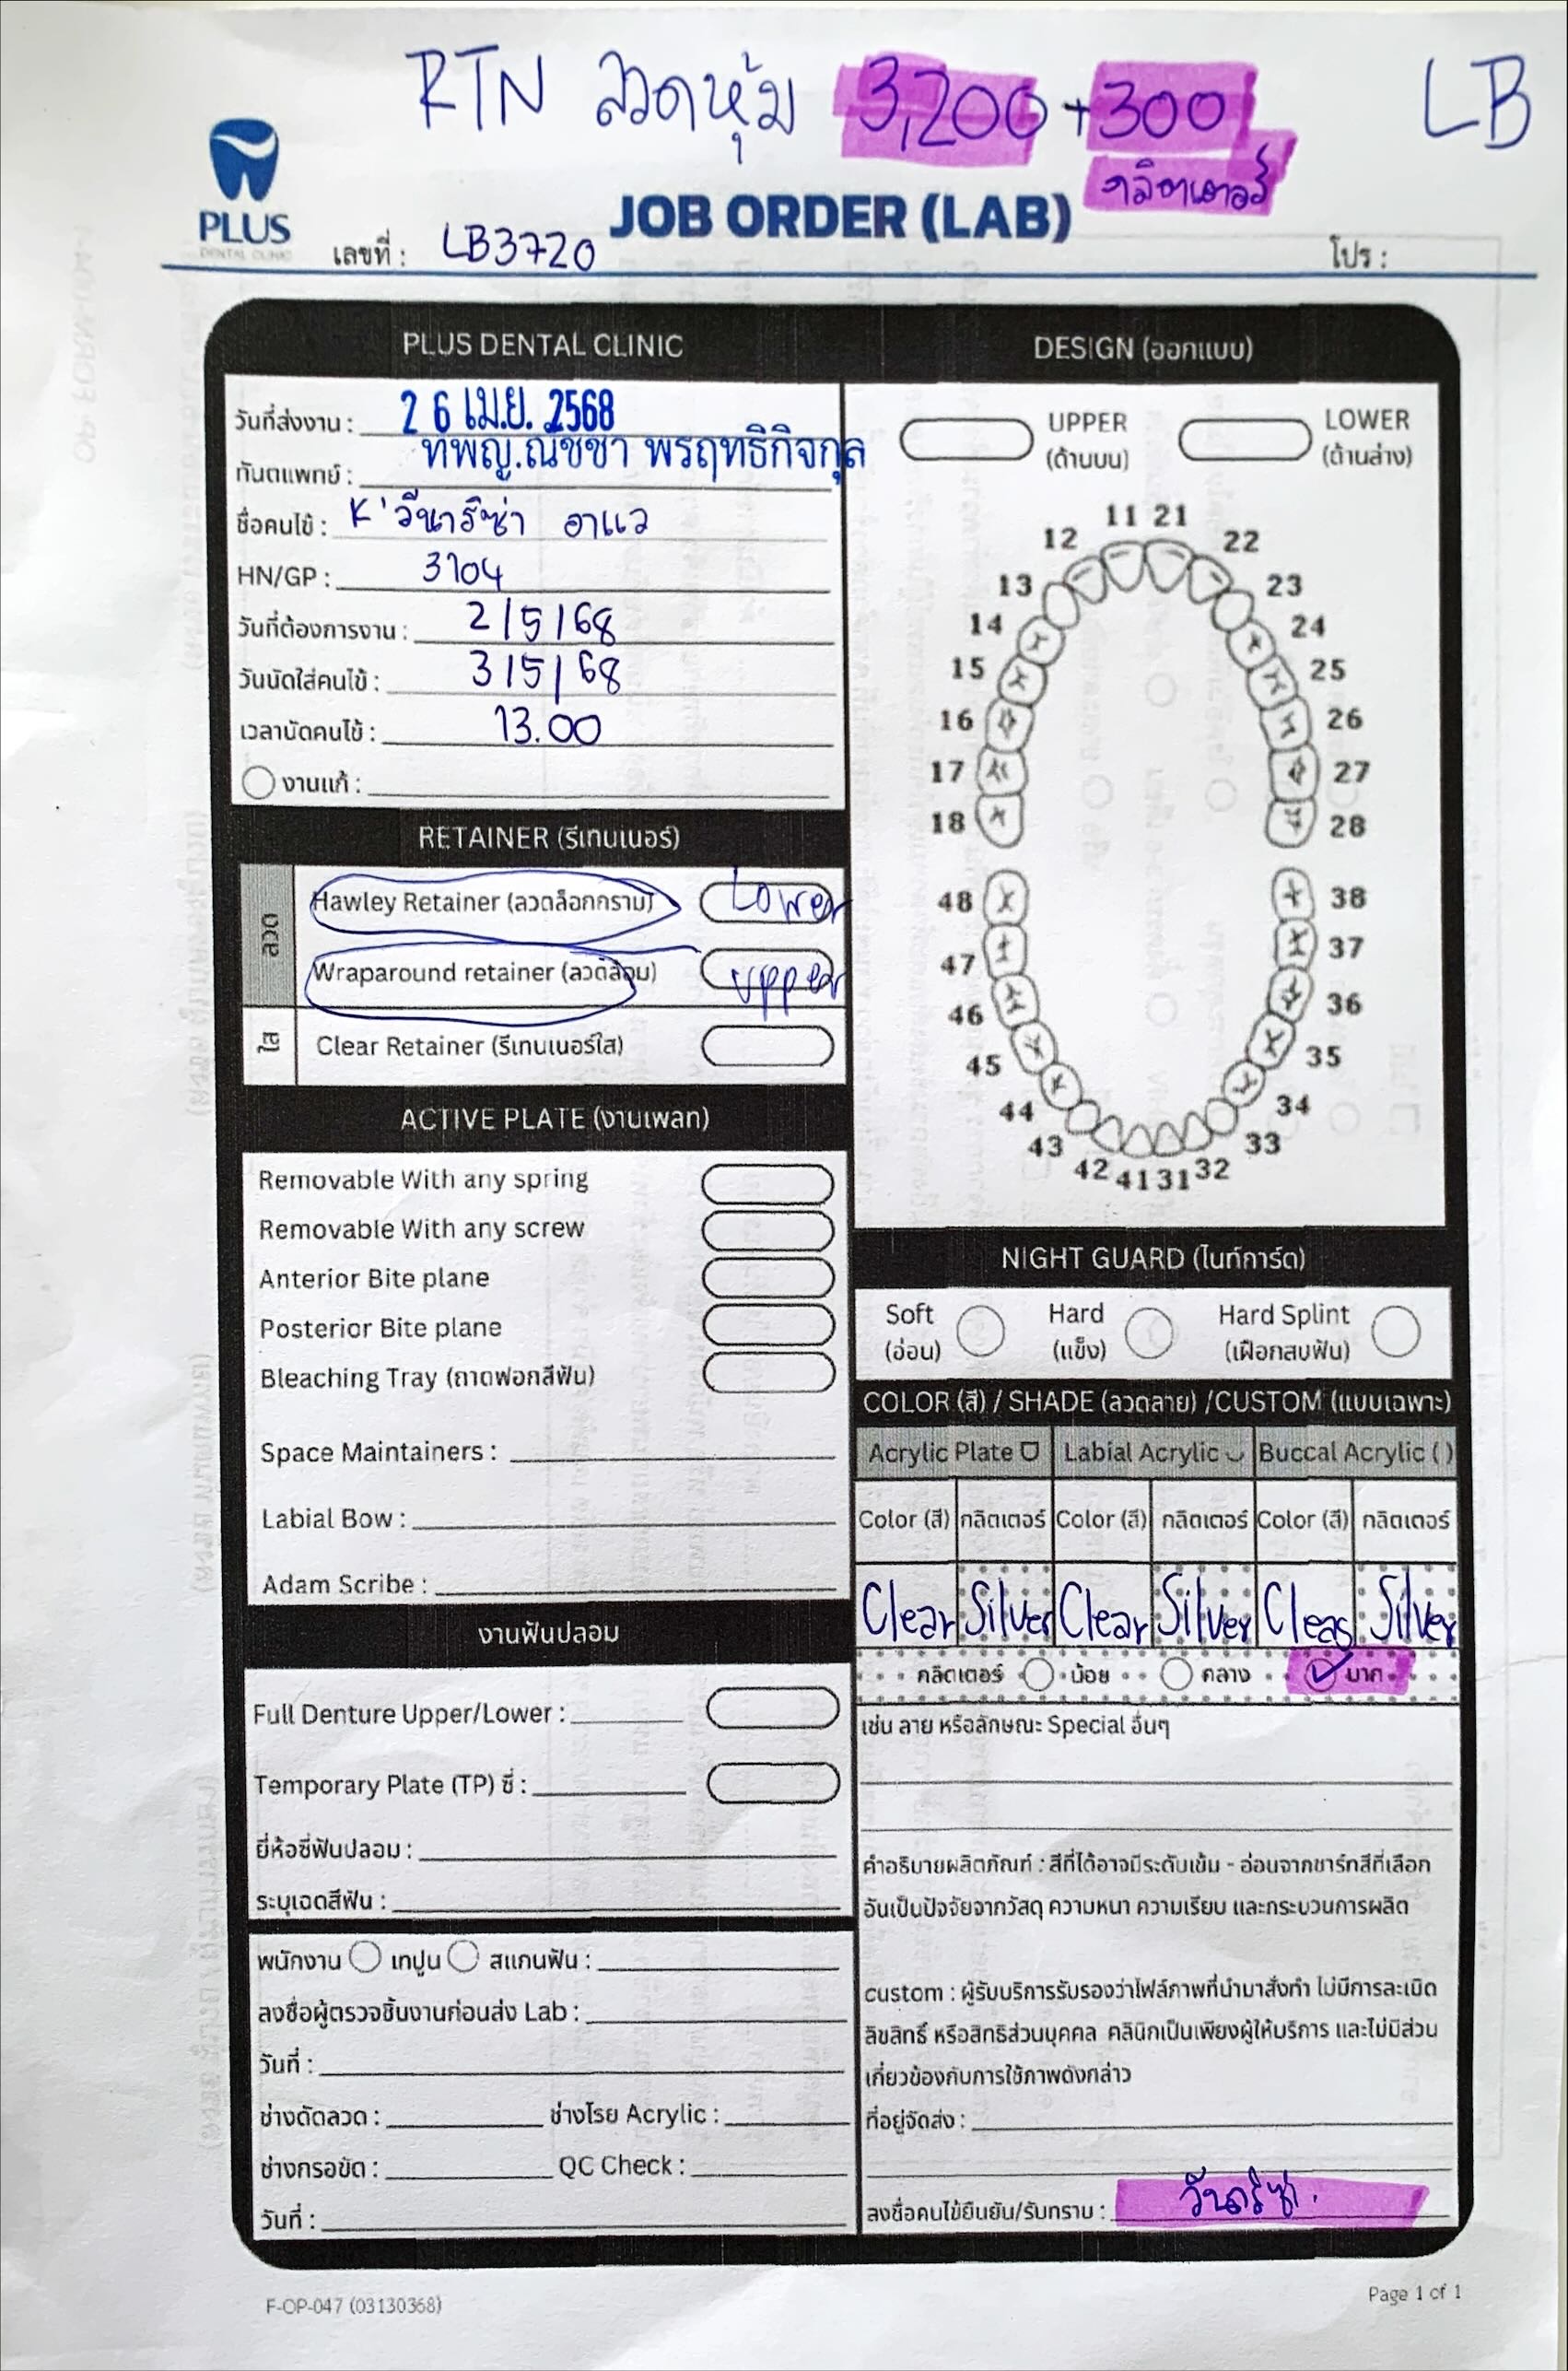 RTN ลวดหุ้ม 3,200 + 300 LB
กลิตเตอร์
PLUS
DENTAL CLINIC
JOB ORDER (LAB)
เลขที่ : LB3720
โปร :
PLUS DENTAL CLINIC
วันที่ส่งงาน : 26 เม.ย. 2568
ทันตแพทย์ : ทพญ.ณัชชา พรฤทธิกิจกุล
ชื่อคนไข้ : K'วีนาริซ่า อาแว
HN/GP : 3704
วันที่ต้องการงาน : 2/5/68
วันนัดใส่คนไข้ : 3/5/68
เวลานัดคนไข้ : 13.00
งานแก้ :
RETAINER (รีเทนเนอร์)
ลวด
Hawley Retainer (ลวดล็อกกราม) Lower
Wraparound retainer (ลวดล้อม) Upper
ใส
Clear Retainer (รีเทนเนอร์ใส)
ACTIVE PLATE (งานเพลท)
Removable With any spring
Removable With any screw
Anterior Bite plane
Posterior Bite plane
Bleaching Tray (ถาดฟอกสีฟัน)
Space Maintainers :
Labial Bow :
Adam Scribe :
งานฟันปลอม
Full Denture Upper/Lower :
Temporary Plate (TP) ซี่ :
ยี่ห้อซี่ฟันปลอม :
ระบุเฉดสีฟัน :
พนักงาน เทปูน สแกนฟัน :
ลงชื่อผู้ตรวจชิ้นงานก่อนส่ง Lab :
วันที่ :
ช่างดัดลวด : ช่างโรย Acrylic :
ช่างกรอขัด : QC Check :
วันที่ :
DESIGN (ออกแบบ)
UPPER LOWER
(ด้านบน) (ด้านล่าง)
11 21
12 22
13 23
14 24
15 25
16 26
17 27
18 28
48 38
47 37
46 36
45 35
44 34
43 33
42 41 31 32
NIGHT GUARD (ไนท์การ์ด)
Soft Hard Hard Splint
(อ่อน) (แข็ง) (เฝือกสบฟัน)
COLOR (สี) / SHADE (ลวดลาย) /CUSTOM (แบบเฉพาะ)
Acrylic Plate Labial Acrylic Buccal Acrylic ( )
Color (สี) กลิตเตอร์ Color (สี) กลิตเตอร์ Color (สี) กลิตเตอร์
Clear Silver Clear Silver Clear Silver
กลิตเตอร์ น้อย กลาง มาก
เช่น ลาย หรือลักษณะ Special อื่นๆ
คำอธิบายผลิตภัณฑ์ : สีที่ได้อาจมีระดับเข้ม - อ่อนจากชาร์ทสีที่เลือก
อันเป็นปัจจัยจากวัสดุ ความหนา ความเรียบ และกระบวนการผลิต
custom : ผู้รับบริการรับรองว่าไฟล์ภาพที่นำมาสั่งทำ ไม่มีการละเมิด
ลิขสิทธิ์ หรือสิทธิส่วนบุคคล คลินิกเป็นเพียงผู้ให้บริการ และไม่มีส่วน
เกี่ยวข้องกับการใช้ภาพดังกล่าว
ที่อยู่จัดส่ง :
ลงชื่อคนไข้ยืนยัน/รับทราบ : วีนาริซ่า.
F-OP-047 (03130368)
Page 1 of 1